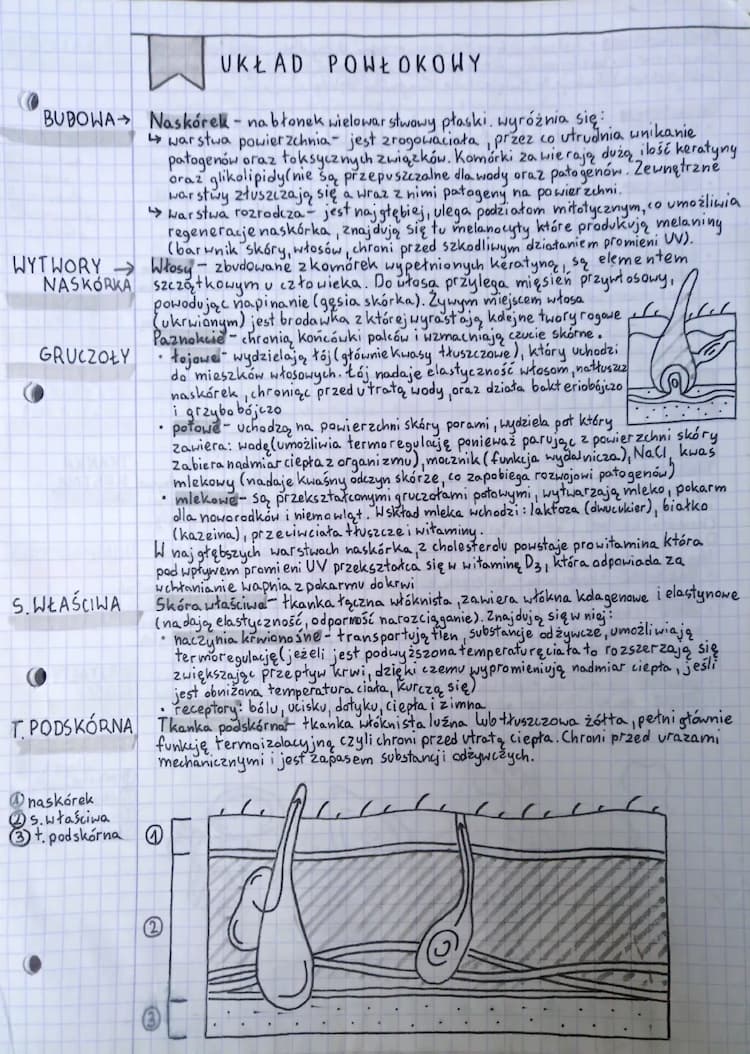 UKŁAD POWŁOKOWY
BUDOWA→ Naskórek - nabłonek wielowarstwowy płaski. wyróżnia się:
↳ warstwa powierzchnia - jest zrogowaciała, przez co utrudnia unikanie
patogenów oraz toksycznych związków. Komórki zawierają dużą ilość keratyny
oraz glikolipidy (nie są przepuszczalne dla wody oraz patogenów. Zewnętrzne
warstwy złuszczają się a wraz z nimi patogeny na powierzchni.
↳ warstwa rozrodcza - jest najgłębiej, ulega podziałom mitotycznym, co umożliwia
regenerację naskórka, znajdują się tu melanocyty które produkują melaniny
(barwnik skóry, włosów, chroni przed szkodliwym działaniem promieni UV).
WYTWORY NASKÓRKA → Włosy - zbudowane z komórek wypełnionych keratyną, są elementem
szczątkowym u człowieka. Do włosa przylega mięsień przywłosowy,
powodując napinanie (gęsia skórka). Żywym miejscem włosa
(ukrwionym) jest brodawka z której wyrastają kolejne twory rogowe
Paznokcie - chronią końcówki palców i wzmacniają czucie skórne.
GRUCZOŁY • łojowe - wydzielają łój (głównie kwasy tłuszczowe), który uchodzi
do mieszków włosowych. Łój nadaje elastyczność włosom, natłuszcz
naskórek, chroniąc przed utratą wody, oraz działa bakteriobójczo
i grzybobójczo
• potowe - uchodzą na powierzchni skóry porami, wydziela pot który
zawiera: wodę (umożliwia termoregulację ponieważ parując z powierzchni skóry
zabiera nadmiar ciepła z organizmu), mocznik (funkcja wydalnicza), NaCl, kwas
mlekowy (nadaje kwaśny odczyn skórze, co zapobiega rozwojowi patogenów)
• mlekowe - są przekształconymi gruczołami potowymi, wytwarzają mleko, pokarm
dla noworodków i niemowląt. W skład mleka wchodzi: laktoza (dwucukier), białko
(kazeina), przeciwciała tłuszcze i witaminy.
W najgłębszych warstwach naskórka, z cholesterolu powstaje prowitamina która
pod wpływem promieni UV przekształca się w witaminę D3, która odpowiada za
wchłanianie wapnia z pokarmu do krwi
S. WŁAŚCIWA Skóra właściwa - tkanka łączna włóknista, zawiera włókna kolagenowe i elastynowe
(nadają elastyczność, odporność na rozciąganie). Znajdują się w niej:
• naczynia krwionośne - transportują tlen, substancje odżywcze, umożliwiają
termoregulację (jeżeli jest podwyższona temperatura ciała to rozszerzają się
zwiększając przepływ krwi, dzięki czemu wypromieniują nadmiar ciepła, jeśli
jest obniżona temperatura ciała, kurczą się)
• receptory: bólu, ucisku, dotyku, ciepła i zimna
T. PODSKÓRNA Tkanka podskórna - tkanka włóknista luźna lub tłuszczowa żółta, pełni głównie
funkcję termoizolacyjną czyli chroni przed utratą ciepła. Chroni przed urazami
mechanicznymi i jest zapasem substancji odżywczych.
① naskórek
② s. właściwa
③ t. podskórna
①
②
③